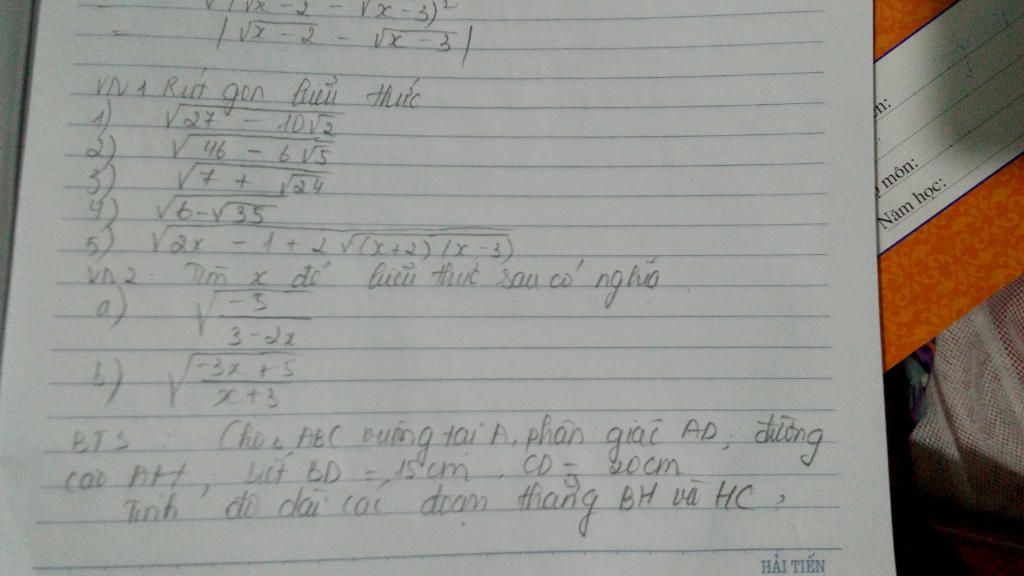 = √(√x-2 - √x-3)²
= |√x-2 - √x-3|
VN1 Rút gọn biểu thức
1) √27 - 10√2
2) √46 - 6√5
3) √7 + √24
4) √6-√35
5) √2x - 1 + 2√(x+2)(x-3)
VN2: Tìm x để biểu thức sau có nghĩa
a) √-5/3-2x
b) √-3x+5/x+3
BT3: Cho △ABC vuông tại A, phân giác AD, đường
cao AH, biết BD = 15cm. CD = 20cm
Tính độ dài các đoạn thẳng BH và HC?
môn:
Năm học:
HẢI TIẾN